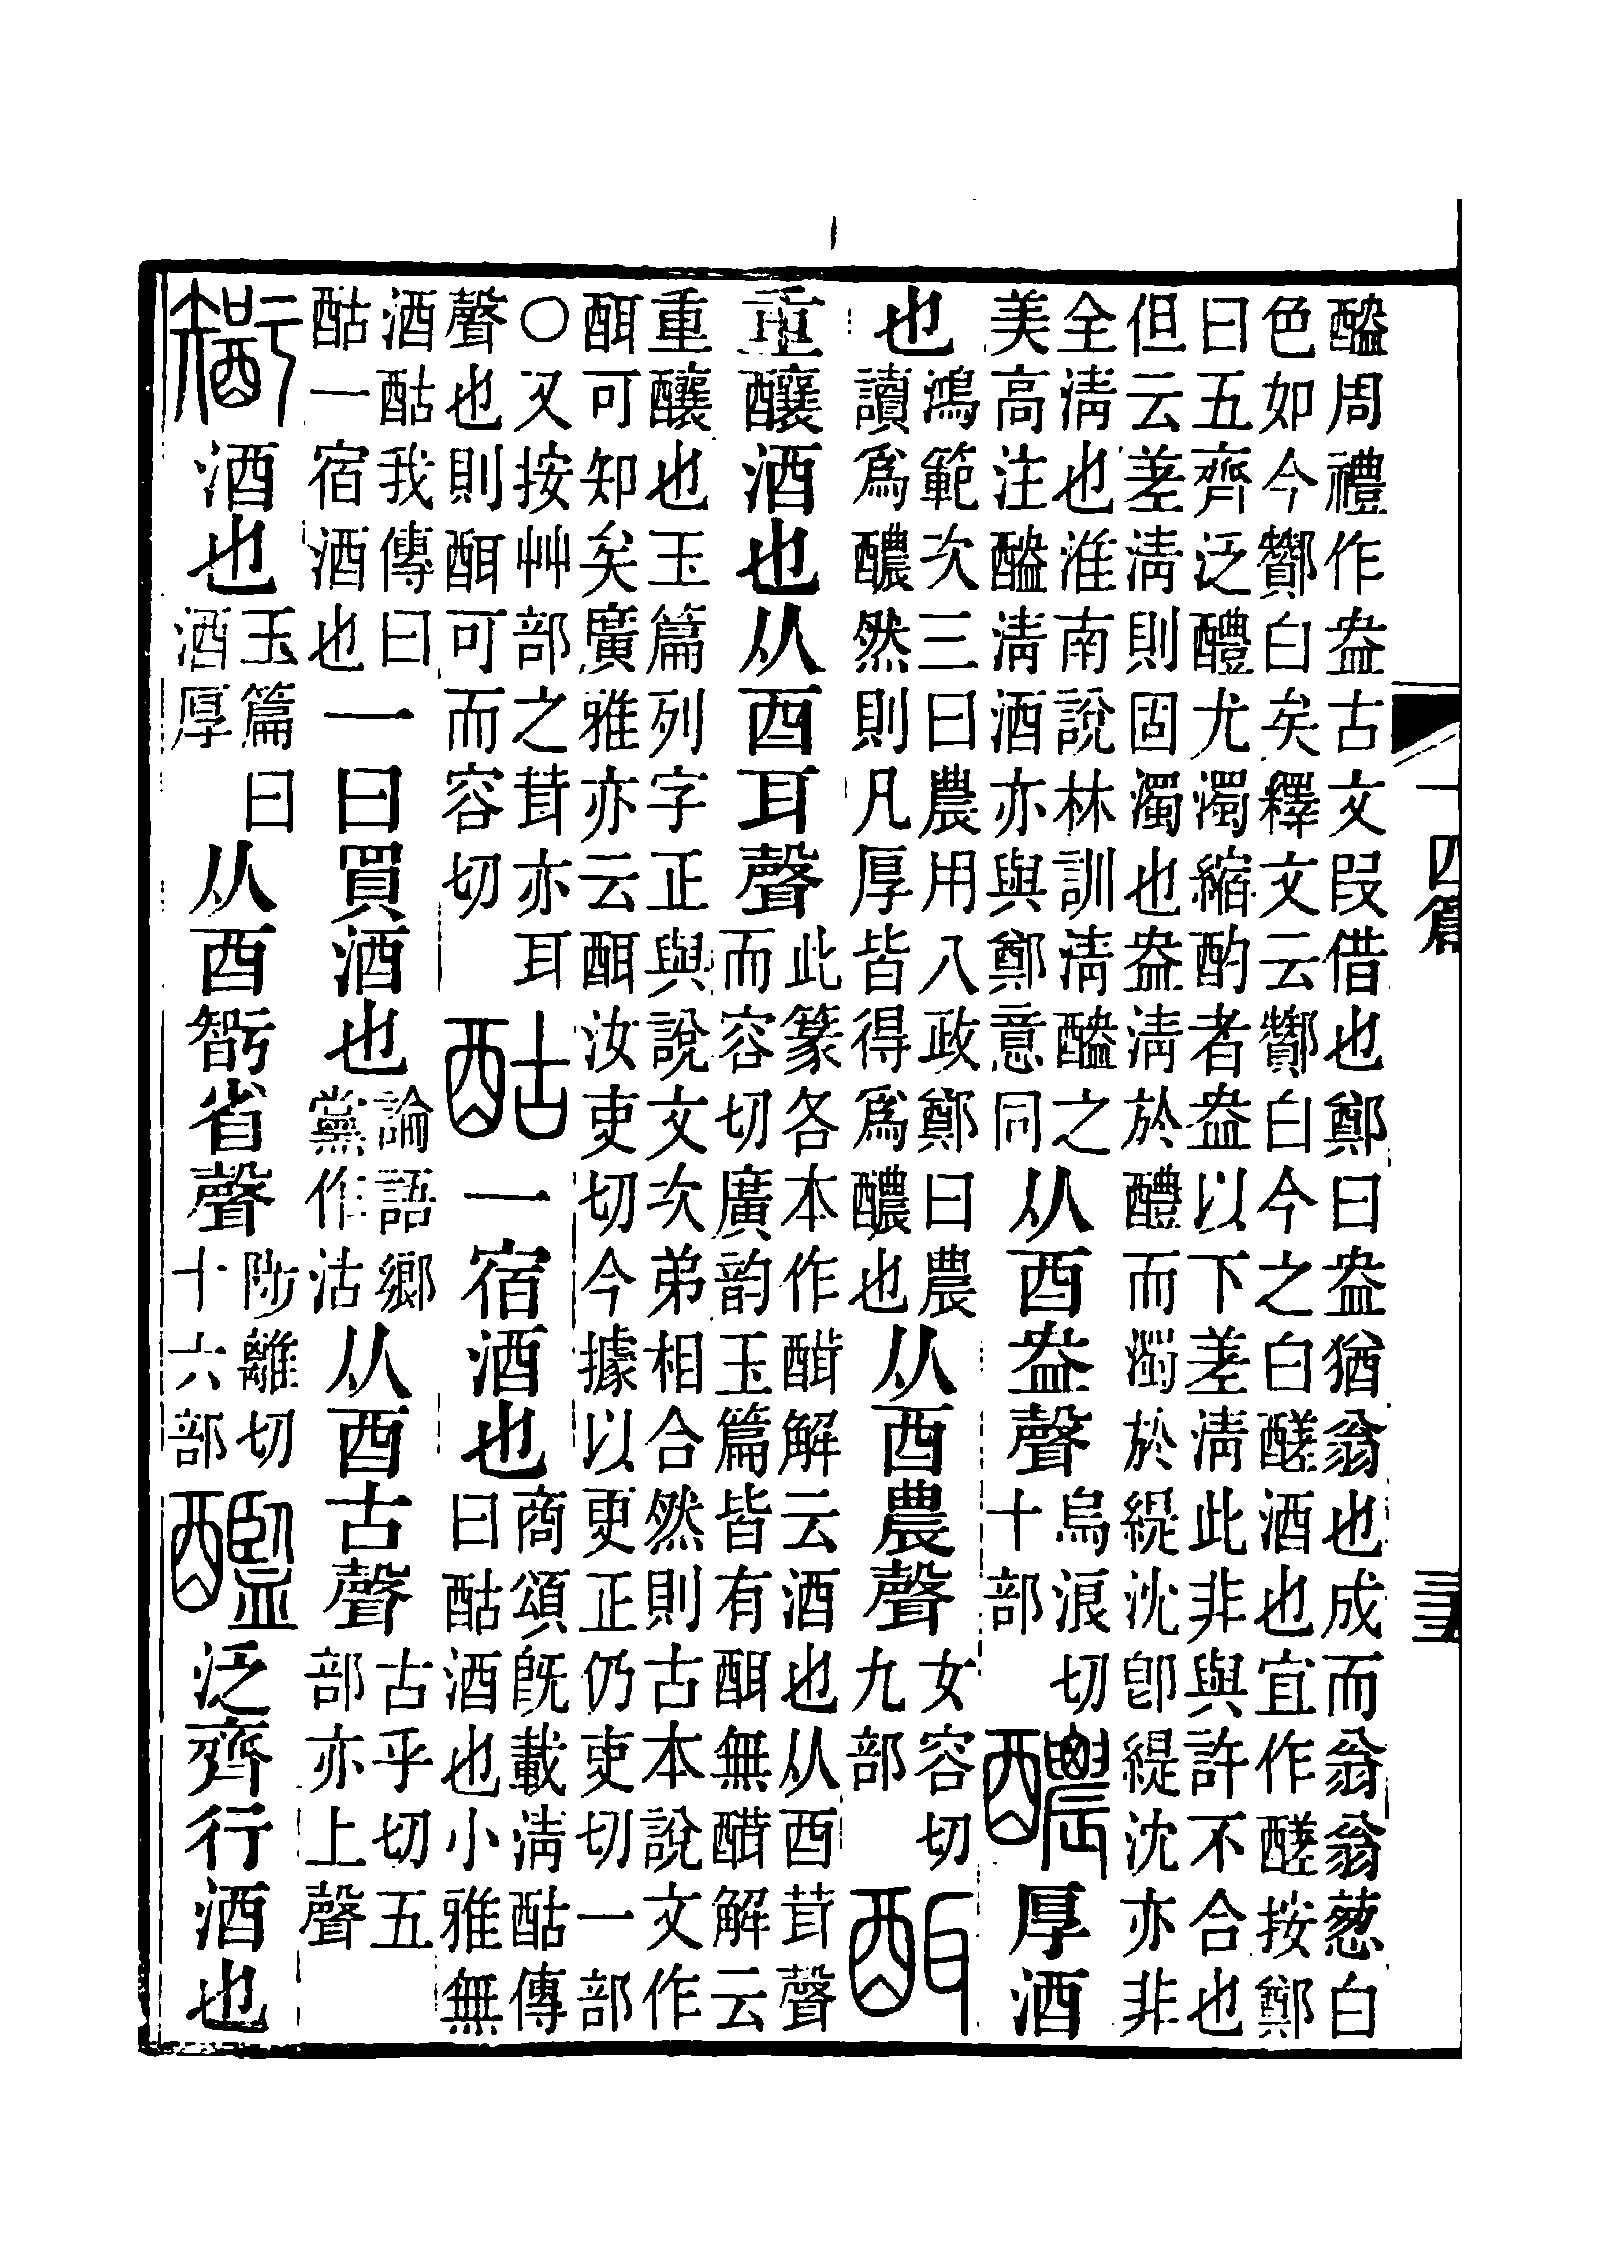 醠周禮作盎古文叚借也鄭曰盎猶翁也成而翁翁蔥白
色如今酇白矣釋文云酇白今之白醝酒也宜作醝按鄭
曰五齊泛醴尤濁縮酌者盎以下差淸此非與許不合也
但云差淸則固濁也盎淸於醴而濁於緹沈卽緹沈亦非
全淸也淮南說林訓淸醠之
美高注醠淸酒亦與鄭意同
从酉盎聲
烏浪切
十部
醲厚酒
也
鴻範次三曰農用八政鄭曰農
讀爲醲然則凡厚皆得爲醲也
从酉農聲
女容切
九部
重釀酒也从酉耳聲
此篆各本作解云酒也从酉茸聲
而容切廣韵玉篇皆有無解云
重釀也玉篇列字正與說文次弟相合然則古本說文作
可知矣廣雅亦云汝吏切今據以更正仍吏切一部
○又按艸部之茸亦耳
聲也則可而容切
酤一宿酒也
商頌旣載淸酤傳
曰酤酒也小雅無
酒酤我傳曰
酤一宿酒也
一曰買酒也
論語鄉
黨作沽
从酉古聲
古乎切五
部亦上聲
酒也
玉篇曰
酒厚
从酉省聲
陟離切
十六部
泛齊行酒也
十四篇